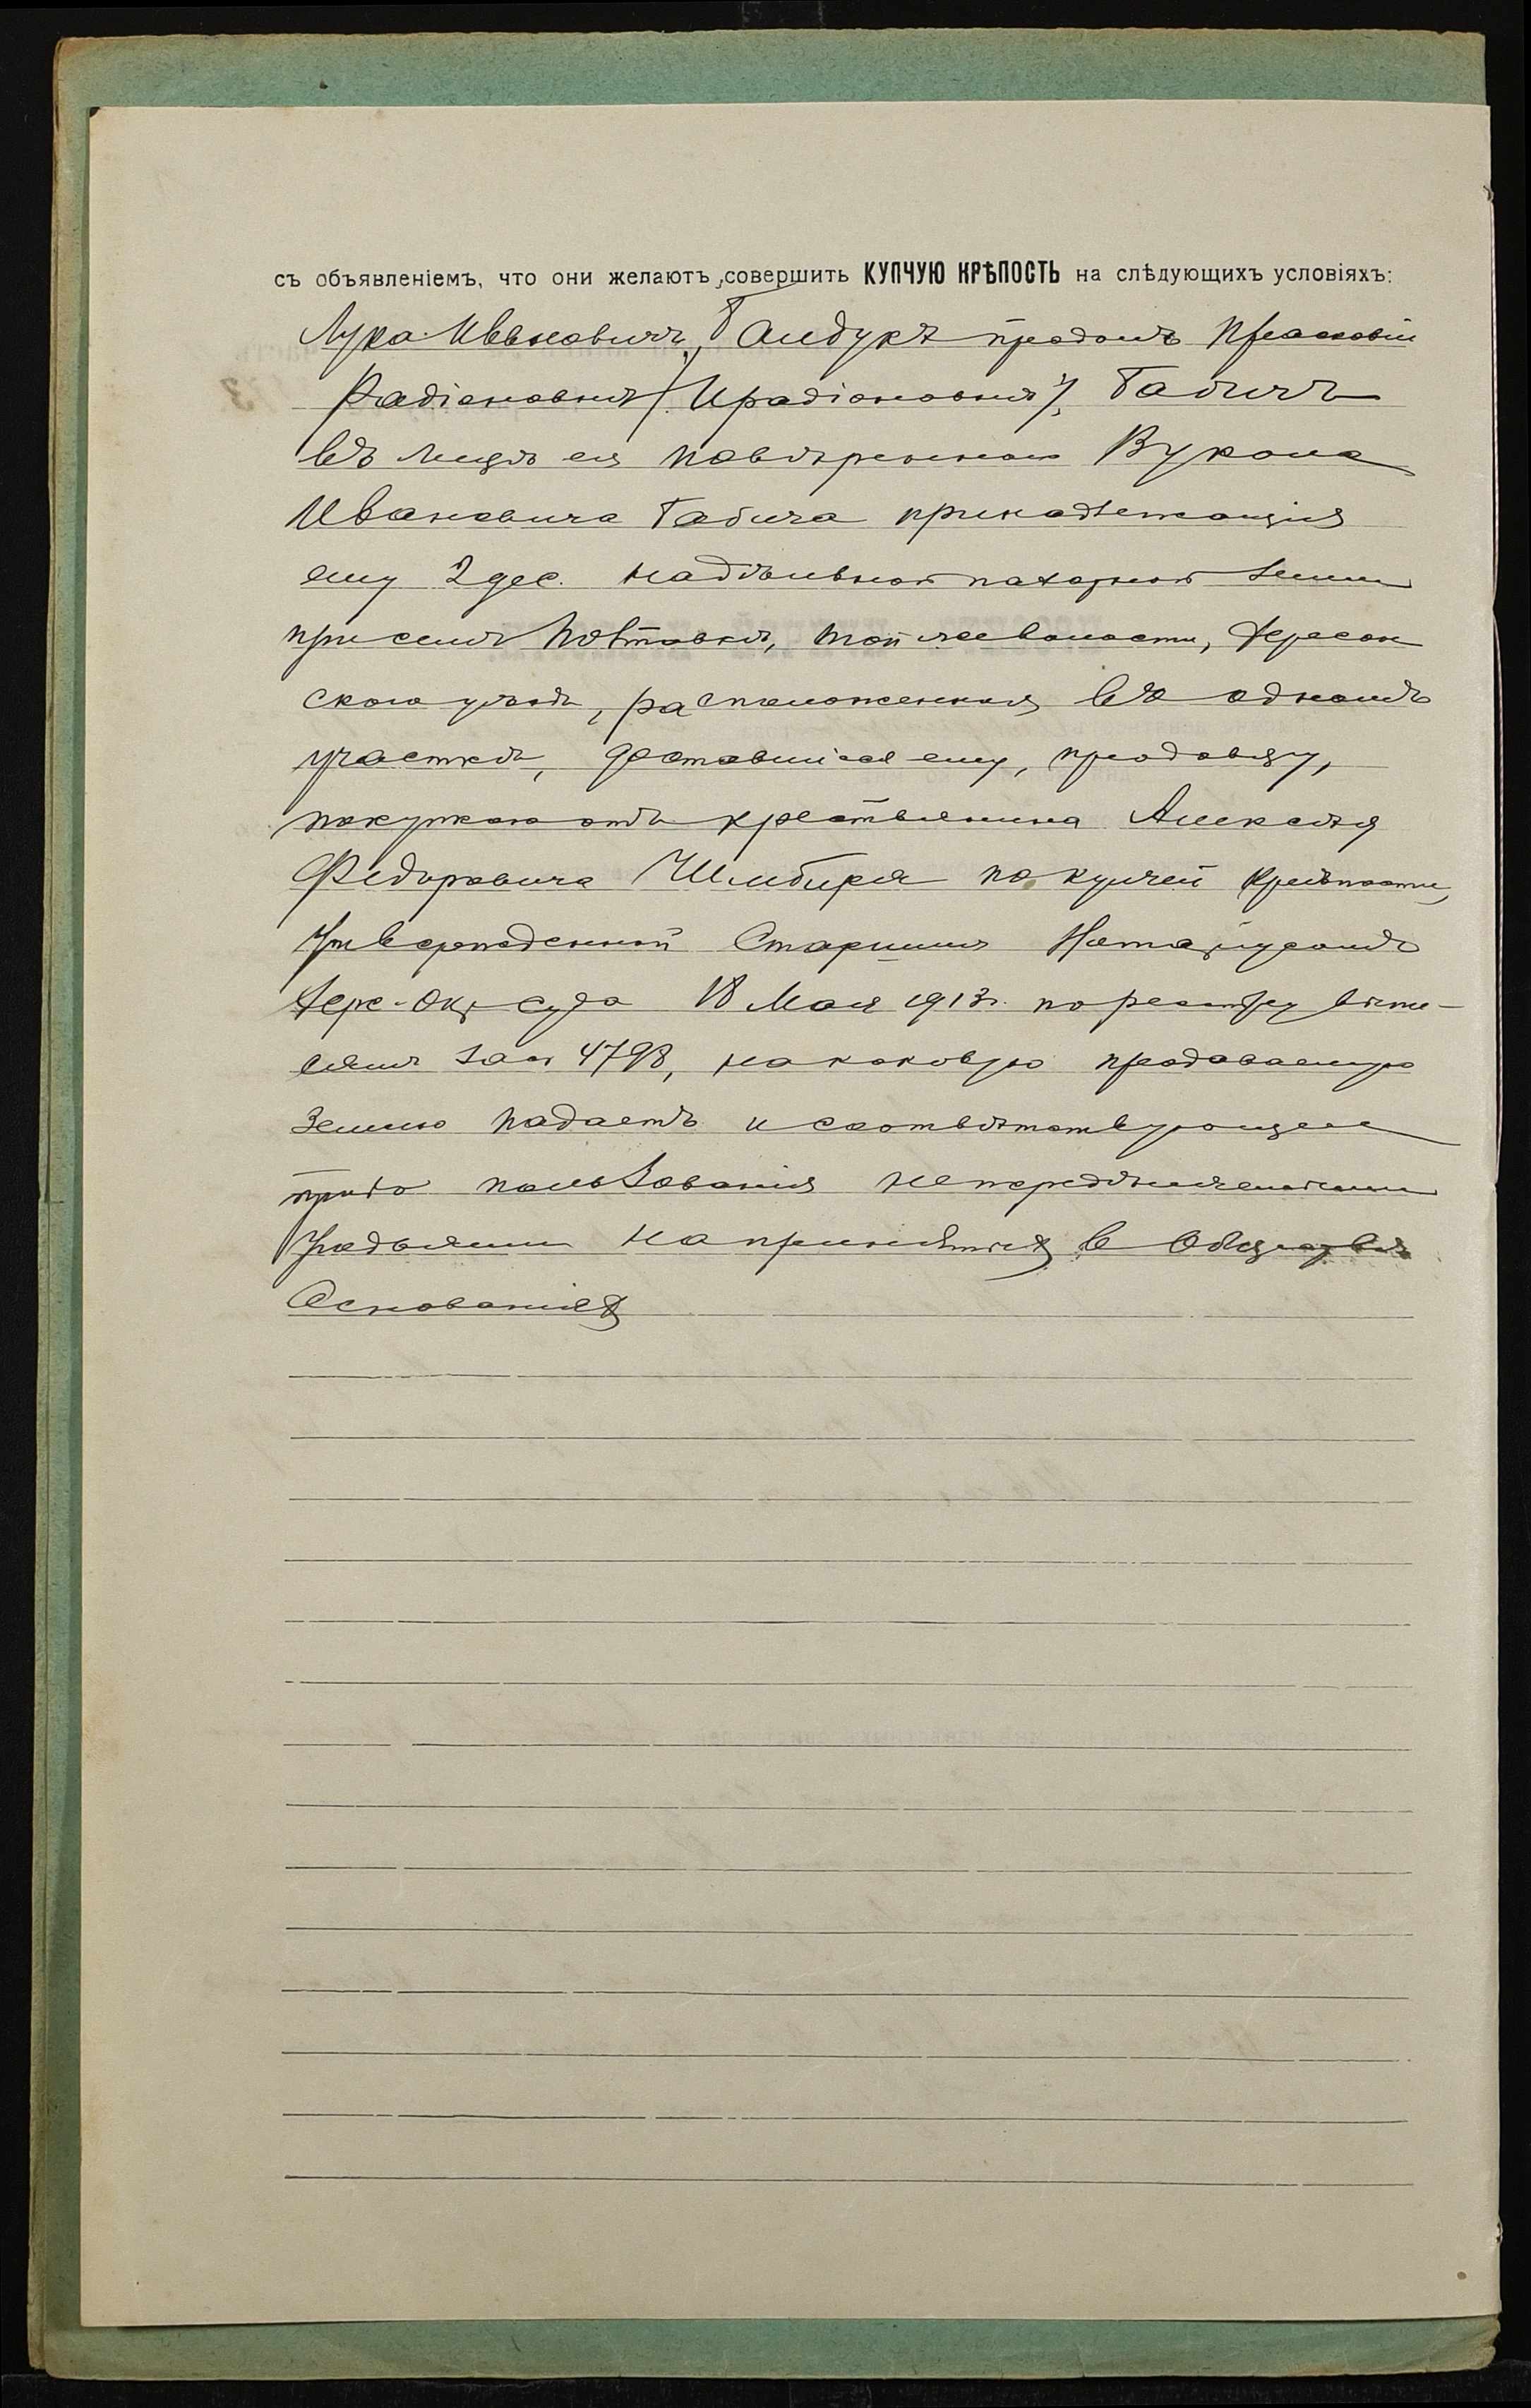 съ объявленіемъ, что они желаютъ совершить КУПЧУЮ КРѢПОСТЬ на слѣдующихъ условіяхъ:
Лука Ивановичъ Гандукъ продалъ Прасковіи
Радіоновнѣ /Ирадіоновнѣ/ Габичъ
въ лицѣ ея повѣреннаго Вукола
Ивановича Габича принадлежащія
ему 2 дес. надѣльной пахотной земли
при селѣ Полтавкѣ, той же волости, Херсон
скаго уѣзда, расположенныя въ одномъ
участкѣ, доставшіяся ему, продавцу,
покупкою отъ крестьянина Алексѣя
Федоровича по купчей крѣпости,
утвержденной Старшимъ Нотаріусомъ
Херс. Окр. суда 18 Мая 1913 г. по реестру
за № 4798, на каковую продаваемую
землю падаетъ и соотвѣтствующее
право пользованія непередѣляемыми
угодьями на принятыхъ в обществѣ
Основаніяхъ